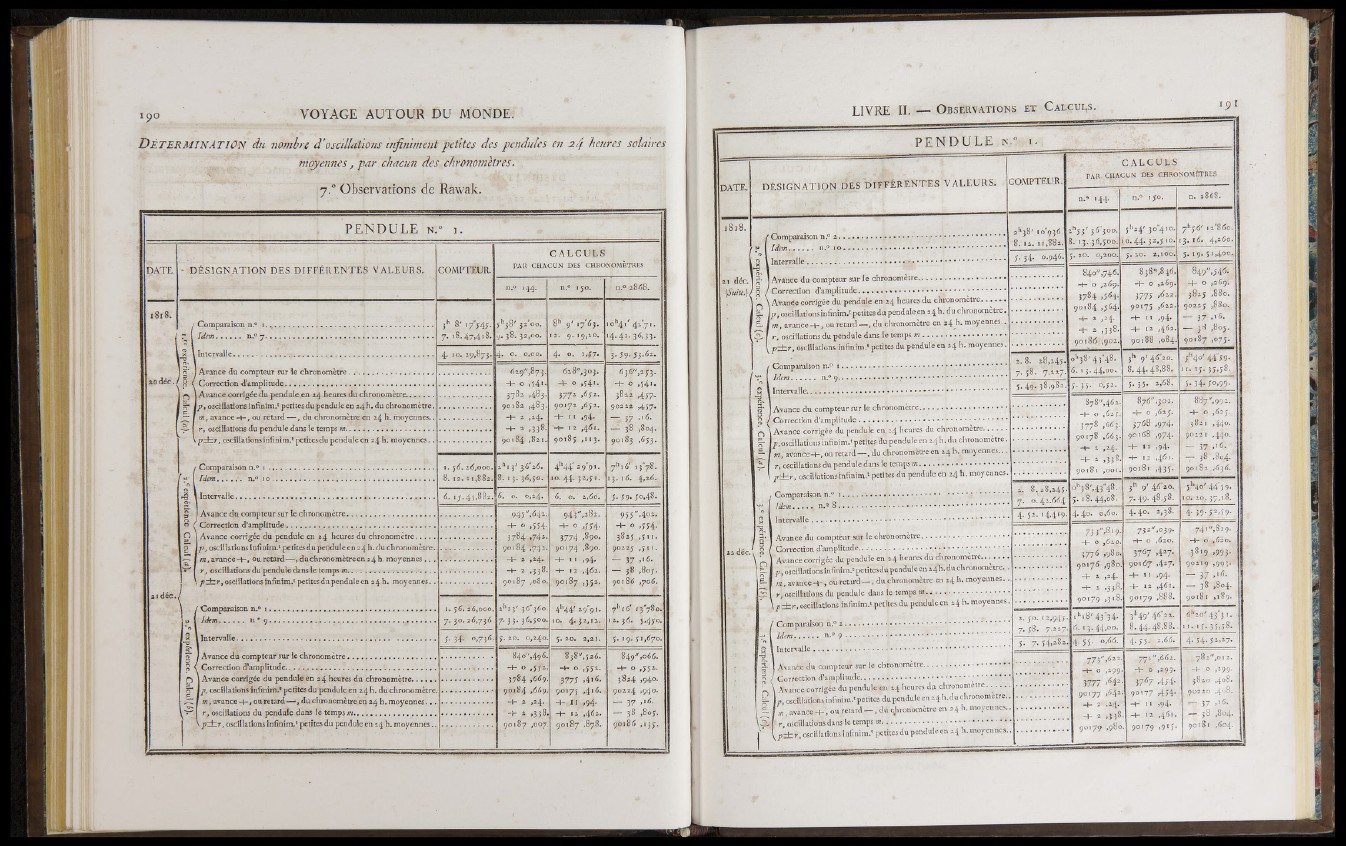 190 VOYAGE AUTOUR DU MONDE.
DÉTERMINATION du nombre d'oscillations infiniment petites des pendules en 24 heures solaires
moyennes, par chacun des chronomètres.
7.° Observations de Rawak.
PENDULE N.° 1.
DATE. DÉSIGNATION DES DIFFÉRENTES VALEURS. COMPTEUR. CALCULS
PAR CHACUN DES CHRONOMÈTRES
n.° 144. n.° 150. n.° 2868.
1818.
20 déc.
Comparaison n.° 1 3h 8' 17"545. 5h38' 32"00. 8h 9' 17"63. 10h41' 42"71.
Idem n.° 7 7. 18. 47,418. 9. 38. 32,00. 12. 9. 19,20. 14. 41. 36,33.
Intervalle 4. 10. 29,873. 4. 0. 0,00. 4. 0. 1,57. 3. 59. 53,62.
Avance du compteur sur le chronomètre 629",873. 628",303. 636",253.
Correction d'amplitude + 0 ,541. + 0 ,541. + 0 ,541.
Avance corrigée du pendule en 24 heures du chronomètre 3782 ,483. 3772 ,652. 3822 ,457.
p, oscillations infinim.t petites du pendule en 24 h. du chronomètre. 90182 ,483. 90172 ,652. 90222 ,457.
m, avance +, ou retard —, du chronomètre en 24 h. moyennes. + 2 ,24. + 11 ,94. — 37 ,16.
r, oscillations du pendule dans le temps m + 2 ,338. + 12 ,461. — 38 ,804.
p±r, oscillations infinim.t petites du pendule en 24 h. moyennes. 90184 ,821. 90185 ,113. 90183 ,653.
21 déc.
Comparaison n.° 1 1. 56. 26,000. 2h13' 36"26. 4h44' 29"91. 7h16' 13"78.
Idem n.° 10 8. 12. 11,882. 8. 13. 36,50. 10. 44. 32,51. 13. 16. 4,26.
Intervalle 6. 15. 41,882. 6. 0. 0,24. 6. 0. 2,60. 5. 59. 50,48.
Avance du compteur sur le chronomètre 945",642. 943",282. 955",402.
Correction d'amplitude + 0 ,554. + 0 ,554. + 0 ,554.
Avance corrigée du pendule en 24 heures du chronomètre 3784 ,742. 3774 ,890. 3825 ,511.
p, oscillations infinim.t petites du pendule en 24 h. du chronomètre. 90184 ,742. 90174 ,890. 90225 ,511.
m, avance +, ou retard —, du chronomètre en 24 h. moyennes. + 2 ,24. + 11 ,94. — 37 ,16.
r, oscillations du pendule dans le temps m + 2 ,338. + 12 ,462. — 38 ,805.
p±r, oscillations infinim.t petites du pendule en 24 h. moyennes. 90187 ,080. 90187 ,352. 90186 ,706.
2.e expérience. Calcul (b).
Comparaison n.° 1 1. 56. 26,000. 2h13' 36"360. 4h44' 29"91. 7h16' 13"780.
Idem n.° 9 7. 30. 26,736. 7. 33. 36,500. 10. 4. 32,12. 12. 36. 5,450.
Intervalle 5. 34. 0,736. 5. 20. 0,240. 5. 20. 2,21. 5. 19. 51,670.
Avance du compteur sur le chronomètre 840",496. 838",526. 849",066.
Correction d'amplitude + 0 ,552. + 0 ,552. + 0 ,552.
Avance corrigée du pendule en 24 heures du chronomètre 3784 ,669. 3775 ,416. 3824 ,940.
p, oscillations infinim.t petites du pendule en 24 h. du chronomètre. 90184 ,669. 90175 ,416. 90224 ,940.
m, avance +, ou retard —, du chronomètre en 24 h. moyennes + 2 ,24. + 11 ,94. — 37 ,16.
r, oscillations du pendule dans le temps m + 2 ,338. + 12 ,462. — 38 ,805.
p±r, oscillations infinim.t petites du pendule en 24 h. moyennes. 90187 ,007. 90187 ,878. 90186 ,135.
LIVRE II. — OBSERVATIONS ET CALCULS. 191
PENDULE N.° 1.
DATE. DÉSIGNATION DES DIFFÉRENTES VALEURS. COMPTEUR. CALCULS
PAR CHACUN DES CHRONOMÈTRES
n.° 144. n.° 150. n. 2868.
1818.
21 déc.
(Suite.)
Comparaison n.° 2 2h38' 10"936. 2h53' 36"300. 5h24' 30"410. 7h56' 12"860.
Idem n.° 10 8. 12. 11,882. 8. 13. 36,500. 10. 44. 32,510. 13. 16. 4,260.
Intervalle 5. 34. 0,946. 5. 20. 0,200. 5. 20. 2,100. 5. 19. 51,400.
Avance du compteur sur le chronomètre 840",746. 838",846. 849",546.
Correction d'amplitude + 0 ,269. + 0 ,269. + 0 ,269.
Avance corrigée du pendule en 24 heures du chronomètre 3784 ,564. 3775 ,622. 3825 ,880.
p, oscillations infinim.t petites du pendule en 24 h. du chronomètre. 90184 ,564. 90175 ,622. 90225 ,880.
m, avance +, ou retard —, du chronomètre en 24 h. moyennes + 2 ,24. + 11 ,94. — 37 ,16.
r, oscillations du pendule dans le temps m + 2 ,338. + 12 ,462. — 38 ,805.
p±r, oscillations infinim.t petites du pendule en 24 h. moyennes. 90186 ,902. 90188 ,084. 90187 ,075.
22 déc.
Comparaison n.° 1 2. 8. 28,245. 0h38' 43"48. 3h 9' 46"20. 5h40' 44"59.
Idem n.° 9 7. 58. 7,227. 6. 13. 44,00. 8. 44. 48,88. 11. 15. 35,58.
Intervalle 5. 49. 38,982. 5. 35. 0,52. 5. 35. 2,68. 5. 34. 50,99.
Avance du compteur sur le chronomètre 878",462. 876",302. 887",992.
Correction d'amplitude + 0 ,625. + 0 ,625. + 0 ,625.
Avance corrigée du pendule en 24 heures du chronomètre 3778 ,663. 3768 ,974. 3821 ,440.
p, oscillations infinim.t petites du pendule en 24 h. du chronomètre. 90178 ,663. 90168 ,974. 90221 ,440.
m, avance +, ou retard —, du chronomètre en 24 h. moyennes + 2 ,24. + 11 ,94. — 37 ,16.
r, oscillations du pendule dans le temps m + 2 ,338. + 12 ,461. — 38 ,804.
p±r, oscillations infinim.t petites du pendule en 24 h. moyennes. 90181 ,001. 90181 ,435. 90182 ,636.
Comparaison n.° 1 2. 8. 28,245. 0h38' 43"48. 3h 9' 46"20. 5h40' 44"59.
Idem n.° 8 7. 0. 42,664. 5. 18. 44,08. 7. 49. 48,58. 10. 20. 37,18.
Intervalle 4. 52. 14,419. 4. 40. 0,60. 4. 40. 2,38. 4. 39. 52,59.
Avance du compteur sur le chronomètre 733",819. 732",039. 741",829.
Correction d'amplitude + 0 ,620. + 0 ,620. + 0 ,620.
Avance corrigée du pendule en 24 heures du chronomètre 3776 ,980. 3767 ,427. 3819 ,993.
p, oscillations infinim.t petites du pendule en 24 h. du chronomètre. 90176 ,980. 90167 ,427. 90219 ,993.
m, avance +, ou retard —, du chronomètre en 24 h. moyennes + 2 ,24. + 11 ,94. — 37 ,16.
r, oscillations du pendule dans le temps m + 2 ,338. + 12 ,461. — 38 ,804.
p±r, oscillations infinim.t petites du pendule en 24 h. moyennes. 90179 ,318. 90179 ,888. 90181 ,189.
Comparaison n.° 2 2. 50. 12,945. 1h18' 43"34. 3h49' 46"22. 6h20' 43"31.
Idem n.° 9 7. 58. 7,227. 6. 13. 44,00. 8. 44. 48,88. 11. 15. 35,58.
Intervalle 5. 7. 54,282. 4. 55. 0,66. 4. 55. 2,66. 4. 54. 52,27.
Avance du compteur sur le chronomètre 773",622. 771",662. 782",012.
Correction d'amplitude + 0 ,299. + 0 ,299. + 0 ,299.
Avance corrigée du pendule en 24 heures du chronomètre 3777 ,642. 3767 ,454. 3820 ,408.
p, oscillations infinim.t petites du pendule en 24 h. du chronomètre. 90177 ,642. 90177 ,454. 90220 ,408.
m, avance +, ou retard —, du chronomètre en 24 h. moyennes + 2 ,24. + 11 ,94. — 37 ,16.
r, oscillations dans le temps m + 2 ,338. + 12 ,461. — 38 ,804.
p±r, oscillations infinim.t petites du pendule en 24 h. moyennes. 90179 ,980. 90179 ,915. 90181 ,604.